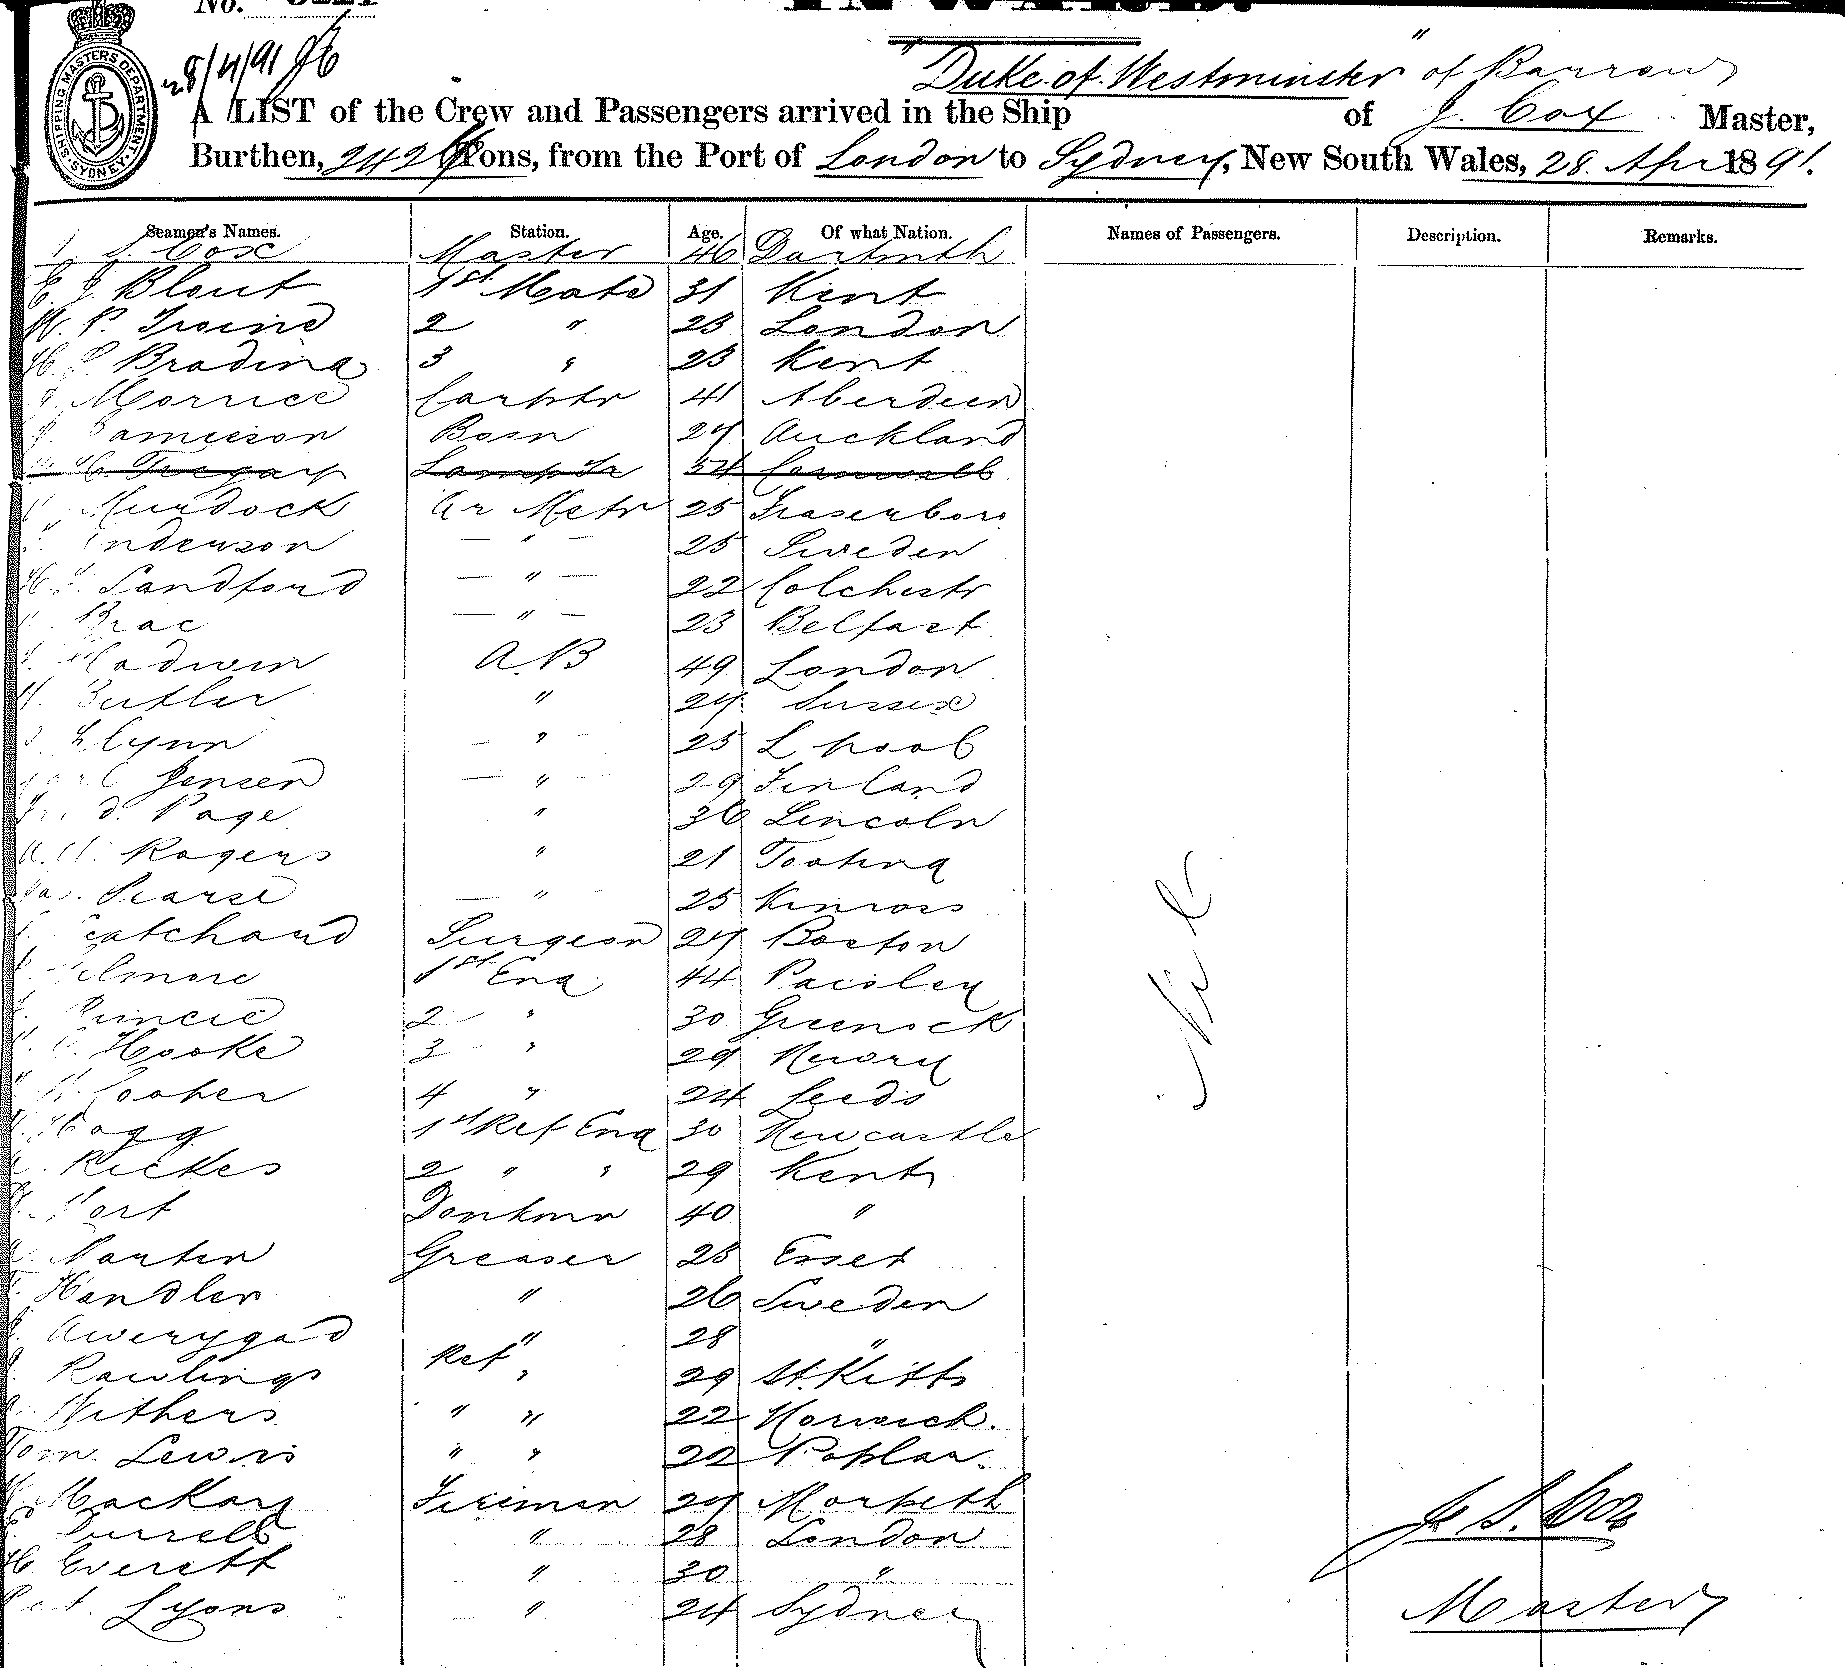 No.
28/4/91
SHIPPING MASTERS DEPARTMENT SYDNEY
"Duke of Westminster" of Barrow
A LIST of the Crew and Passengers arrived in the Ship of J. Cox Master,
Burthen, 2426 Tons, from the Port of London to Sydney, New South Wales, 28 Apr 1891.
Seamen's Names. Station. Age. Of what Nation. Names of Passengers. Description. Remarks.
J. S. Cox Master 46 Dartmth
E. J. Blout 1st Mate 31 Kent
P. Irvine 2 " 23 London
H. Brading 3 " 23 Kent
Morrice Carptr 41 Aberdeen
J. Jamieson Bosn 27 Auckland
Tregary Lamp Tr 54 Cornwall
Murdock Qr Mstr 25 Fraserboro
Anderson — " — 25 Sweden
Sandford — " — 22 Colchestr
Brac — " — 23 Belfast
Hadwin A.B 49 London
Butler " 27 Sussex
Flynn — " 25 L pool
Jensen — " 29 Finland
Page " 36 Lincoln
Rogers " 21 Tooting
Pearse — " 25 Kinross
Catchard Surgeon 27 Boston
Gilmore 1st Eng 44 Paisley
Rimcie 2 " 30 Greenock
Hooke 3 " 29 Newry
Cooper 4 " 24 Leeds
Hogg 1st Ref Eng 30 Newcastle
Rickes 2 " " 29 Kent
Port Donkmn 40 "
Martin Greaser 28 Essex
Handler " 26 Sweden
Awerygad " 28 "
Rawlings Ref " 29 St. Kitts
Withers " " 22 Norwich.
Tom. Lewis " " 22 Poplar.
Mackay Fireman 27 Morpeth
Turrell " 28 London
H Everett " 30 "
Pat. Lyons " 24 Sydney
Nil
J. S. Cox
Master